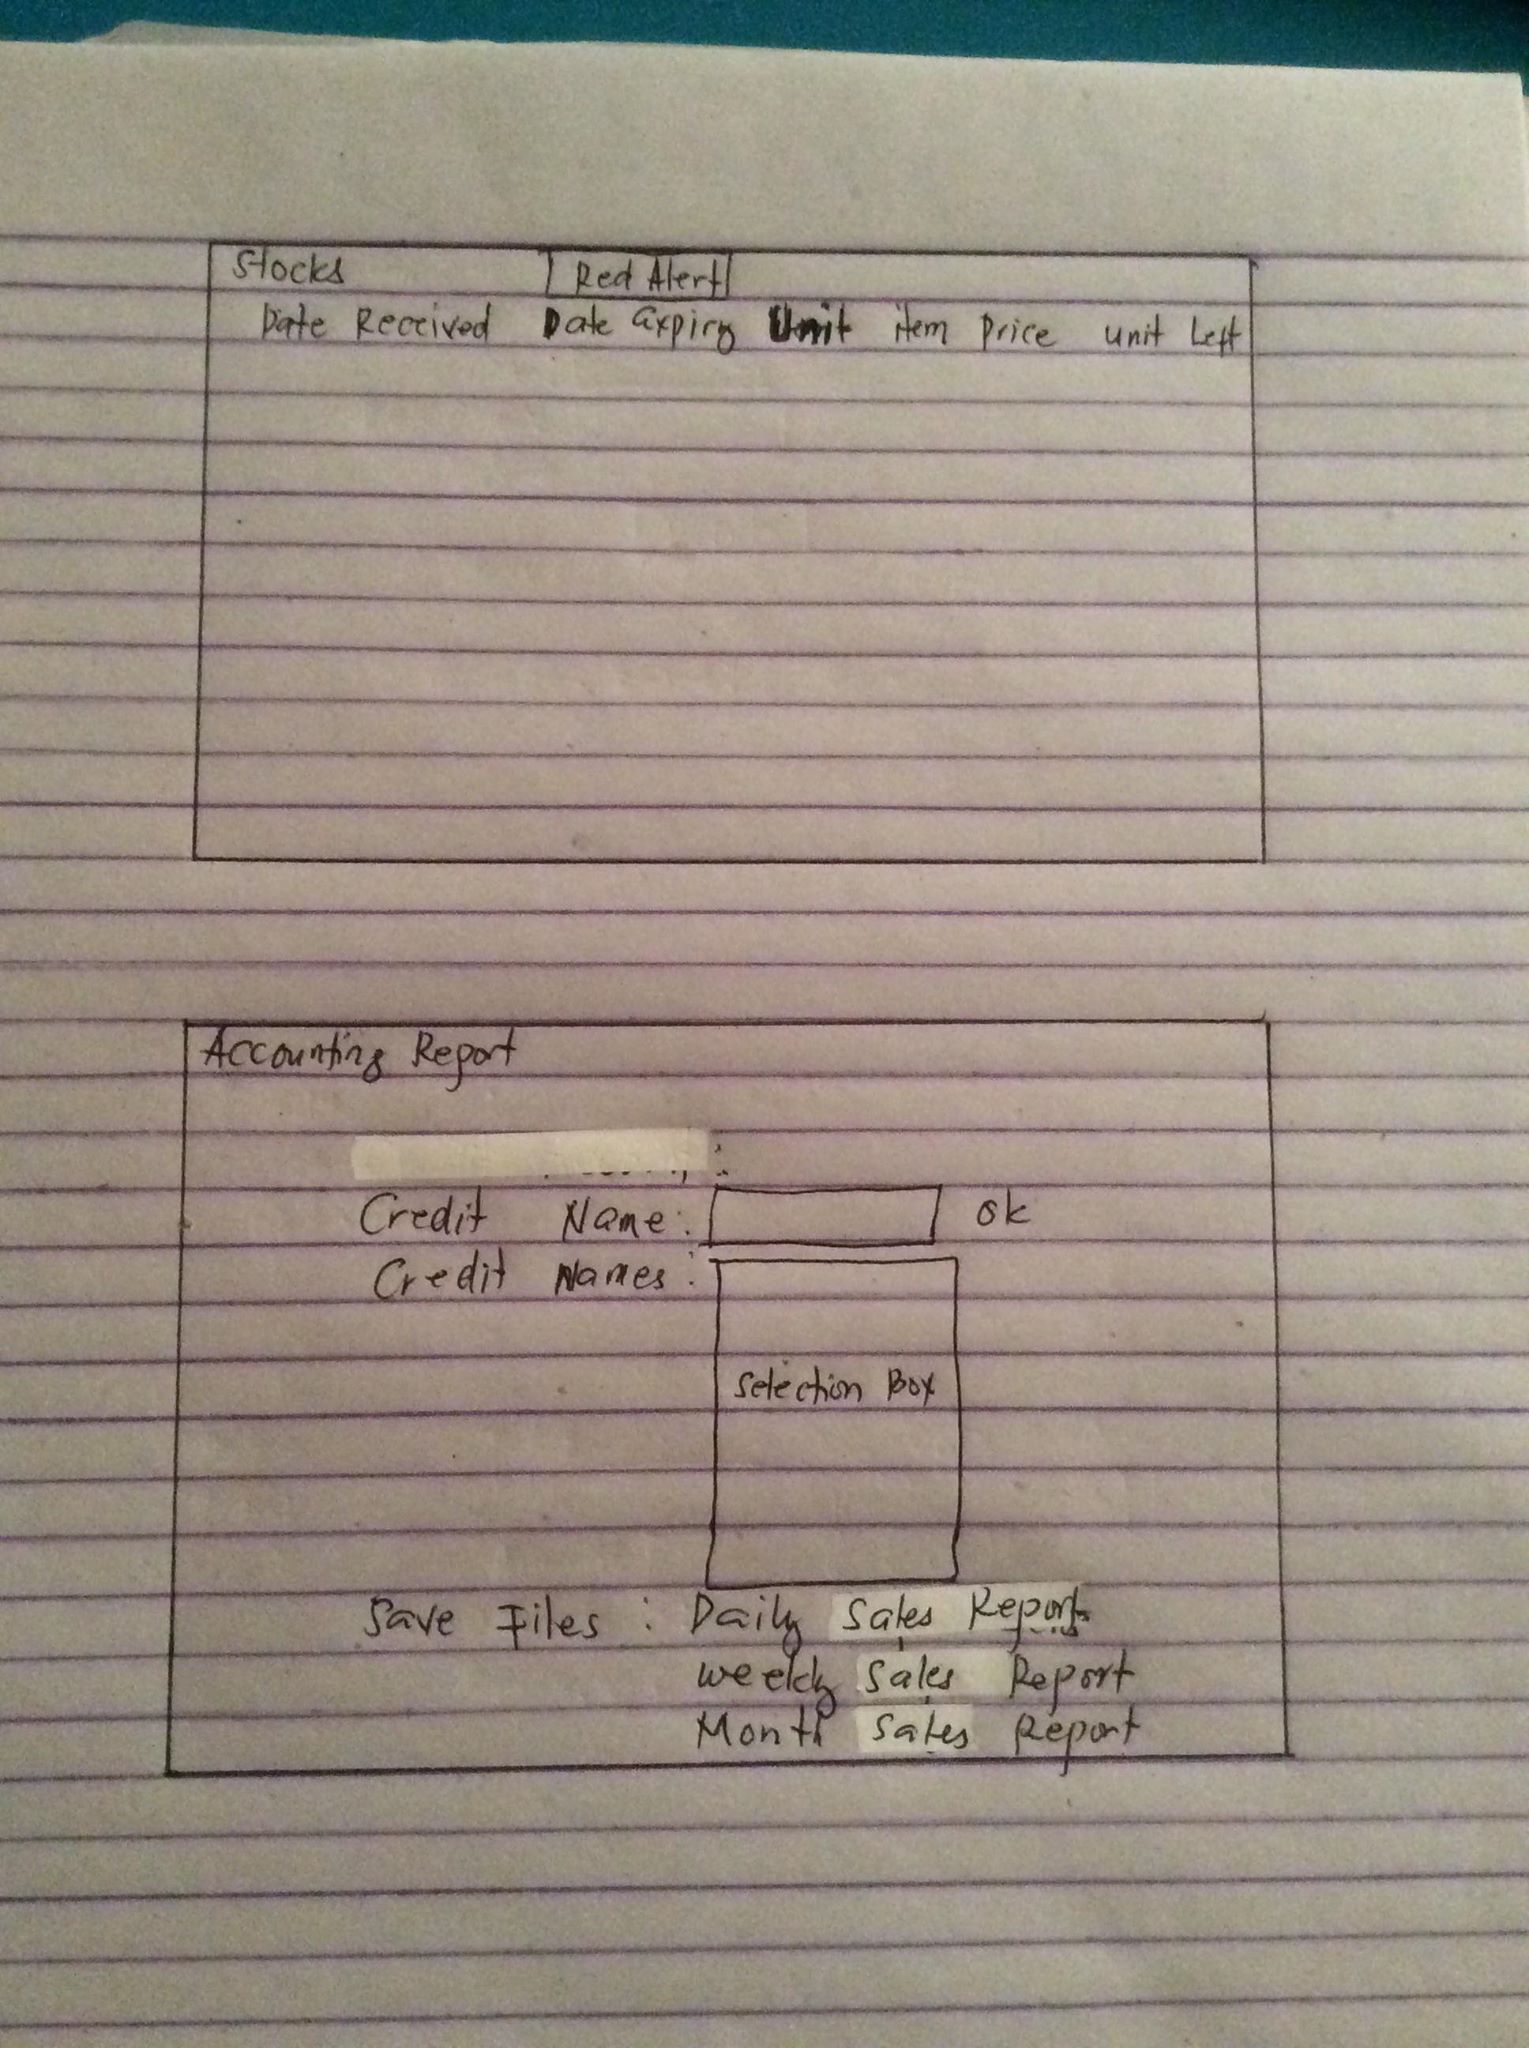 Stocks Red Alert
Date Received Date Expiry Unit item Price unit Left
Accounting Report
Credit Name: ok
Credit Names:
Selection Box
Save Files: Daily Sales Report
Weekly Sales Report
Month Sales Report